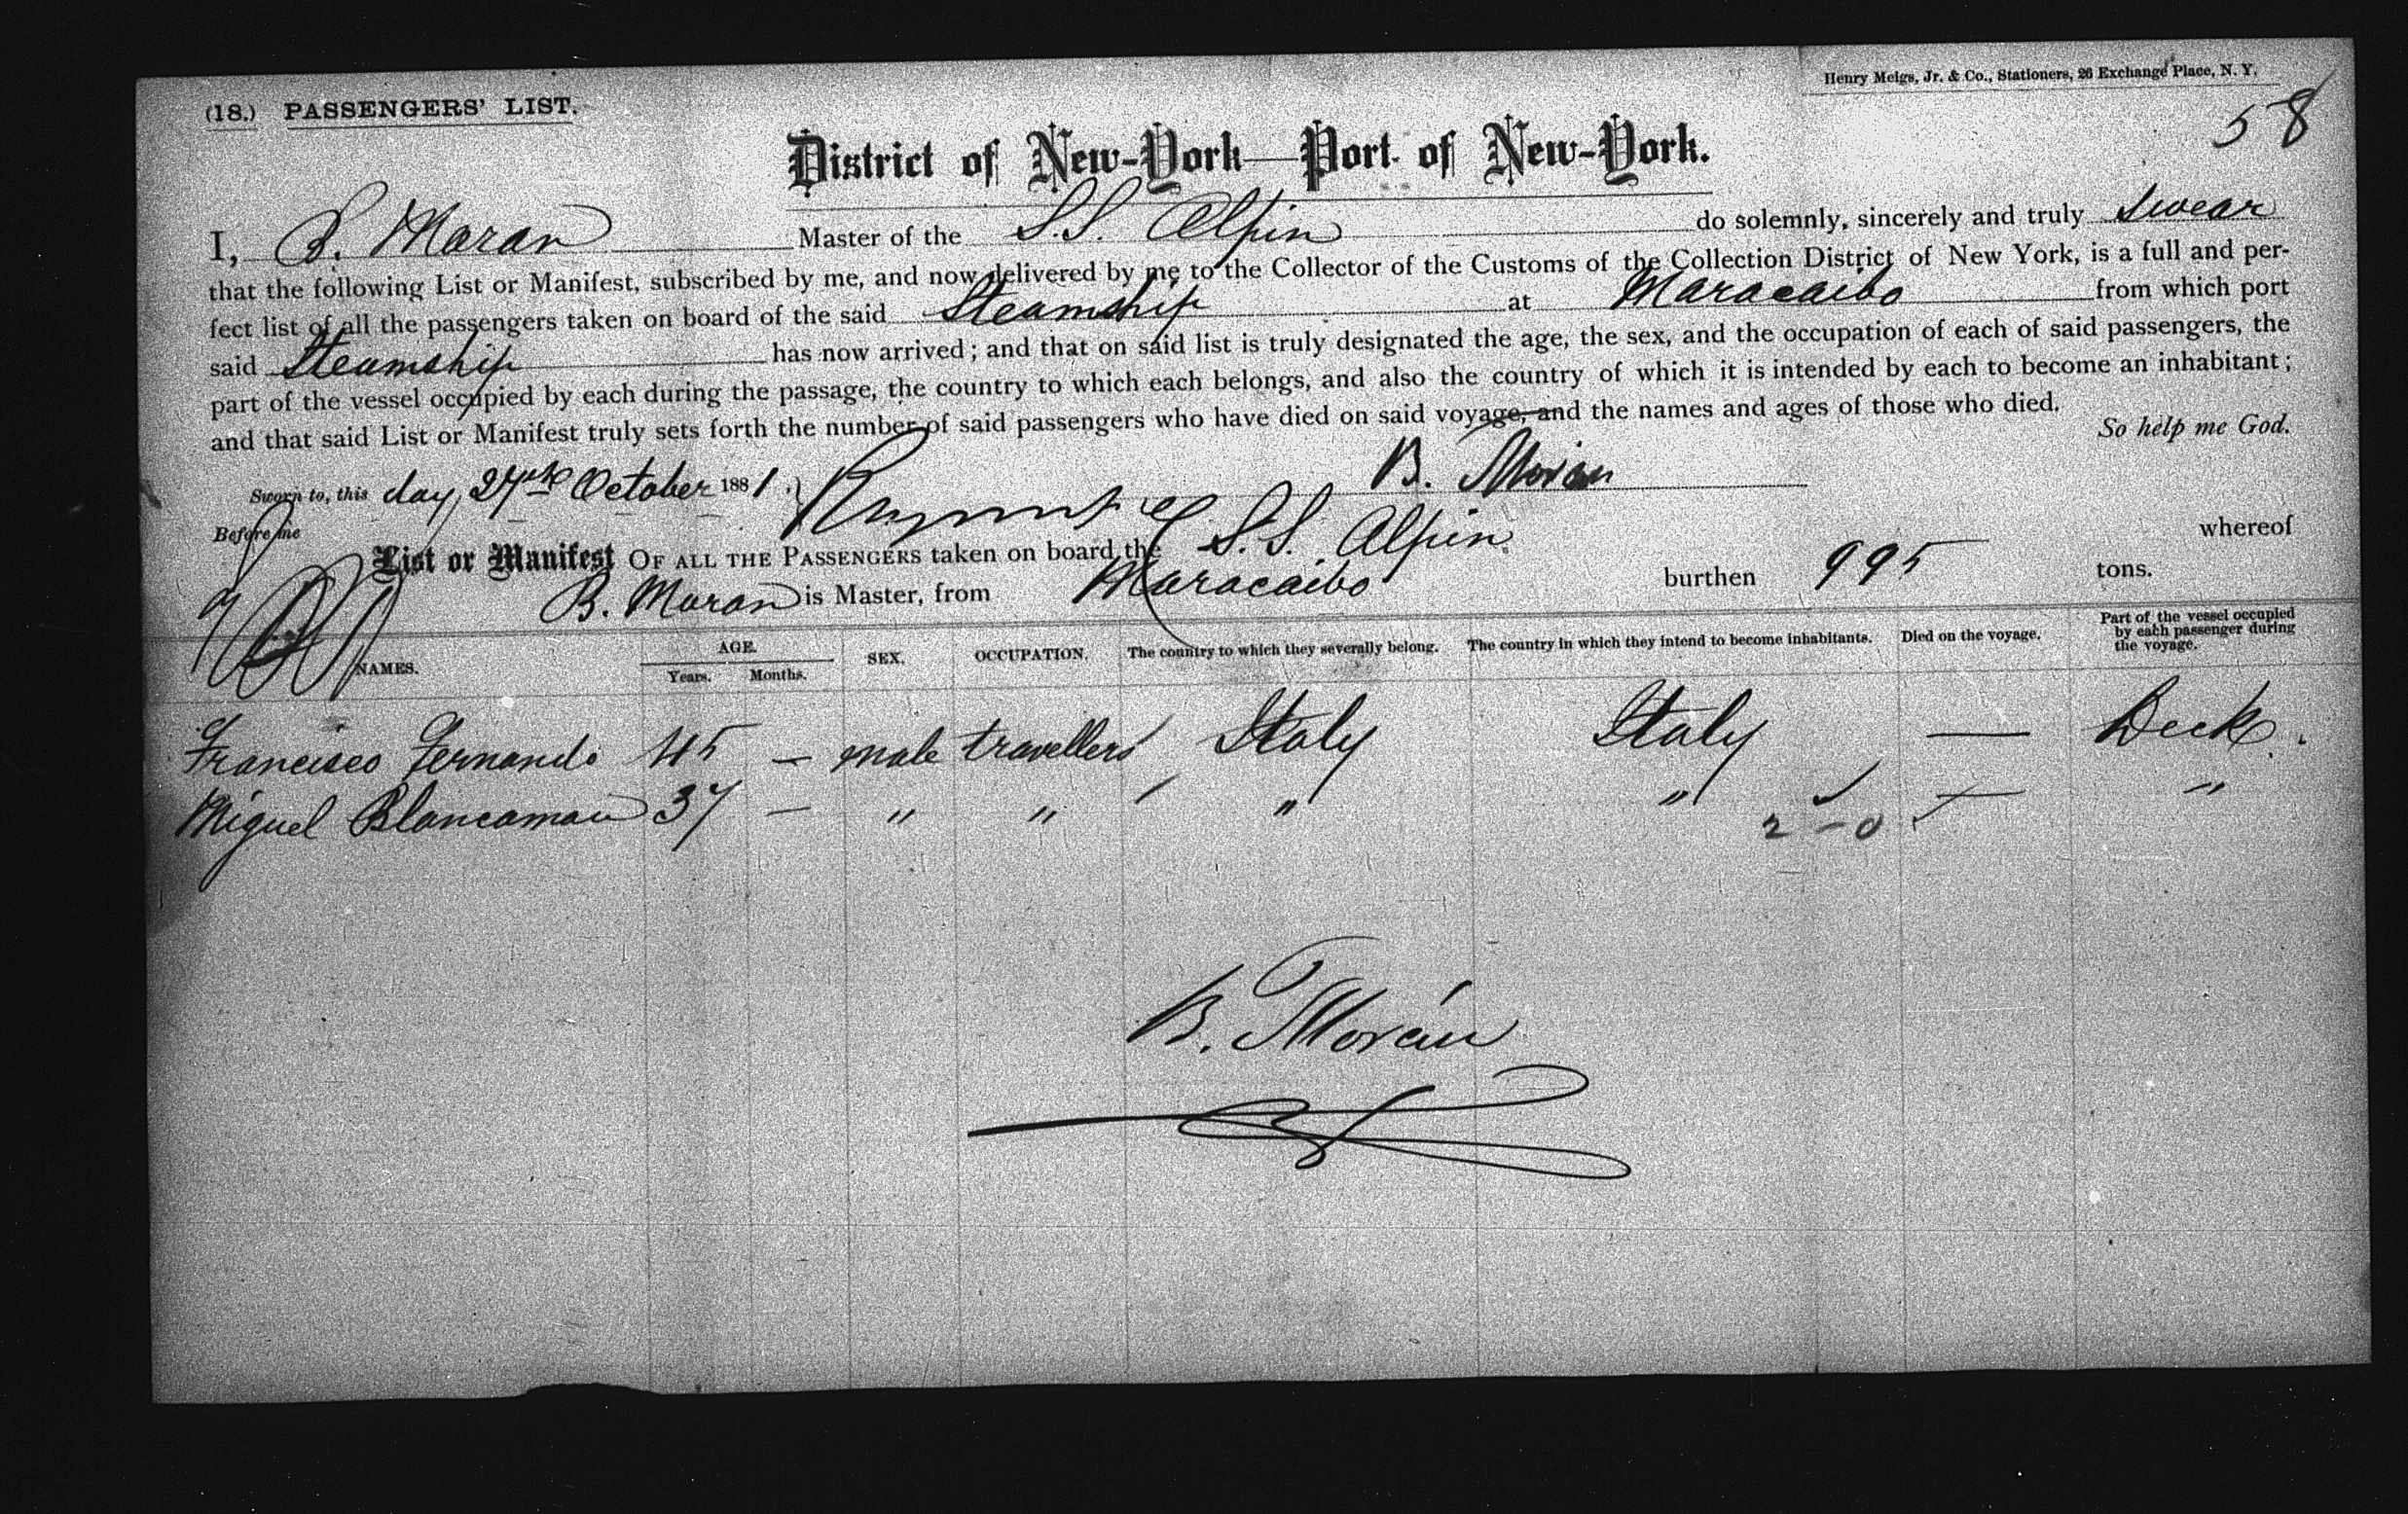 Henry Meigs, Jr. & Co., Stationers, 26 Exchange Place, N. Y.
(18.) PASSENGERS' LIST.
58
District of New-York—Port of New-York.
I, B. Moran Master of the S.S. Alpin do solemnly, sincerely and truly swear
that the following List or Manifest, subscribed by me, and now delivered by me to the Collector of the Customs of the Collection District of New York, is a full and per-
fect list of all the passengers taken on board of the said Steamship at Maracaibo from which port
said Steamship has now arrived; and that on said list is truly designated the age, the sex, and the occupation of each of said passengers, the
part of the vessel occupied by each during the passage, the country to which each belongs, and also the country of which it is intended by each to become an inhabitant;
and that said List or Manifest truly sets forth the number of said passengers who have died on said voyage, and the names and ages of those who died.
So help me God.
Sworn to, this day 27th October 1881. B. Morán
Before me
List or Manifest OF ALL THE PASSENGERS taken on board the S.S. Alpin whereof
B. Moran is Master, from Maracaibo burthen 995 tons.
NAMES. AGE. Years. Months. SEX. OCCUPATION. The country to which they severally belong. The country in which they intend to become inhabitants. Died on the voyage. Part of the vessel occupied by each passenger during the voyage.
Francisco Fernando 45 — male travellers Italy Italy — Deck.
Miguel Blancaman 37 — " " " " — "
2-0
B. Morán